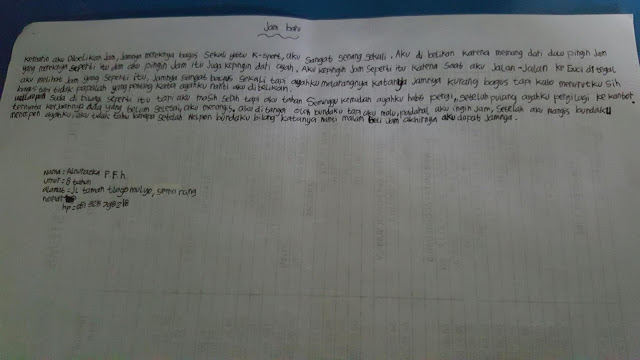 Jam baru
Kemarin aku dibelikan Jam, Jamnya mereknya bagus sekali yaitu K-sport, aku sangat senang sekali. Aku di belikan karena memang dari dulu pingin Jam
yang mereknya seperti itu dan aku pingin Jam itu Juga kepingin dari ayah. Aku kepingin Jam seperti itu karena saat aku Jalan-Jalan ke Guci di tegal
aku melihat Jam yang seperti itu, Jamnya sangat bagus sekali tapi ayahku melarangnya katanya Jamnya kurang bagus tapi kalo menurutku sih
bagus tapi tidak papalah yang penting kata ayahku nanti aku di belikan.
walaupun suda di bilang seperti itu tapi aku masih sedih tapi aku tahan seminggu kemudian ayahku habis pergi, setelah pulang ayahku pergi lagi ke kantor,
ternyata kerjaannya ada yang belum selesai, aku menangis, aku di tanyai oleh bundaku tapi aku malu, padahal aku ingin Jam, setelah aku nangis bundaku
menelpon ayahku, aku tidak tahu kenapa setelah nelpon bundaku bilang katanya nanti malam beli Jam akhirnya aku dapat Jamnya.
Nama = F.F.h.
umur = 8 tahun
alamat = JL taman tlogo mulyo, semarang
hp =